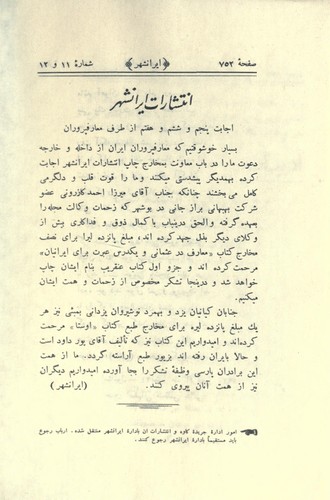 صفحهٔ ۷۵۲ ﴿ ایرانشهر ﴾ شمارهٔ ۱۱ و ۱۲
انتشارات ایرانشهر
اجابت پنجم و ششم و هفتم از طرف معارفپروران
بسیار خوشوقتیم که معارفپروران ایران از داخله و خارجه
دعوت ما را در باب معاونت بمخارج چاپ انتشارات ایرانشهر اجابت
کرده بهمدیگر پیشدستی میکنند و ما را قوت قلب و دلگرمی
کامل می بخشند چنانکه جناب آقای میرزا احمد کازرونی عضو
شرکت بهبهانی براز جانی در بوشهر که زحمات وکالت مجله را
بعهده گرفته و الحق در اینباب با کمال ذوق و فداکاری بیش از
وکلای دیگر بذل جهد کرده اند، مبلغ پانزده لیرا برای نصف
مخارج کتاب «معارف در عثمانی و یکدرس عبرت برای ایرانیان»
مرحمت کرده اند و جزو اول کتاب عنقریب بنام ایشان چاپ
خواهد شد و در اینجا تشکر مخصوص از زحمات و همت ایشان
میکنیم.
جنابان کیانیان یزد و بهمرد نوشیروان یزدانی بمبئی نیز هر
یك مبلغ پانزده لیره برای مخارج طبع کتاب «اوستا» مرحمت
کرده‌اند و امیدواریم این کتاب نیز که تألیف آقای پور داود است
و حالا بایران رفته اند بزیور طبع آراسته گردد. ما از همت
این برادران پارسی وظیفهٔ تشکر را بجا آورده امیدواریم دیگران
نیز از همت آنان پیروی کنند. (ایرانشهر)
امور ادارهٔ جریدهٔ کاوه و انتشارات آن بادارهٔ ایرانشهر منتقل شده. ارباب رجوع
باید مستقیماً بادارهٔ ایرانشهر رجوع کنند.